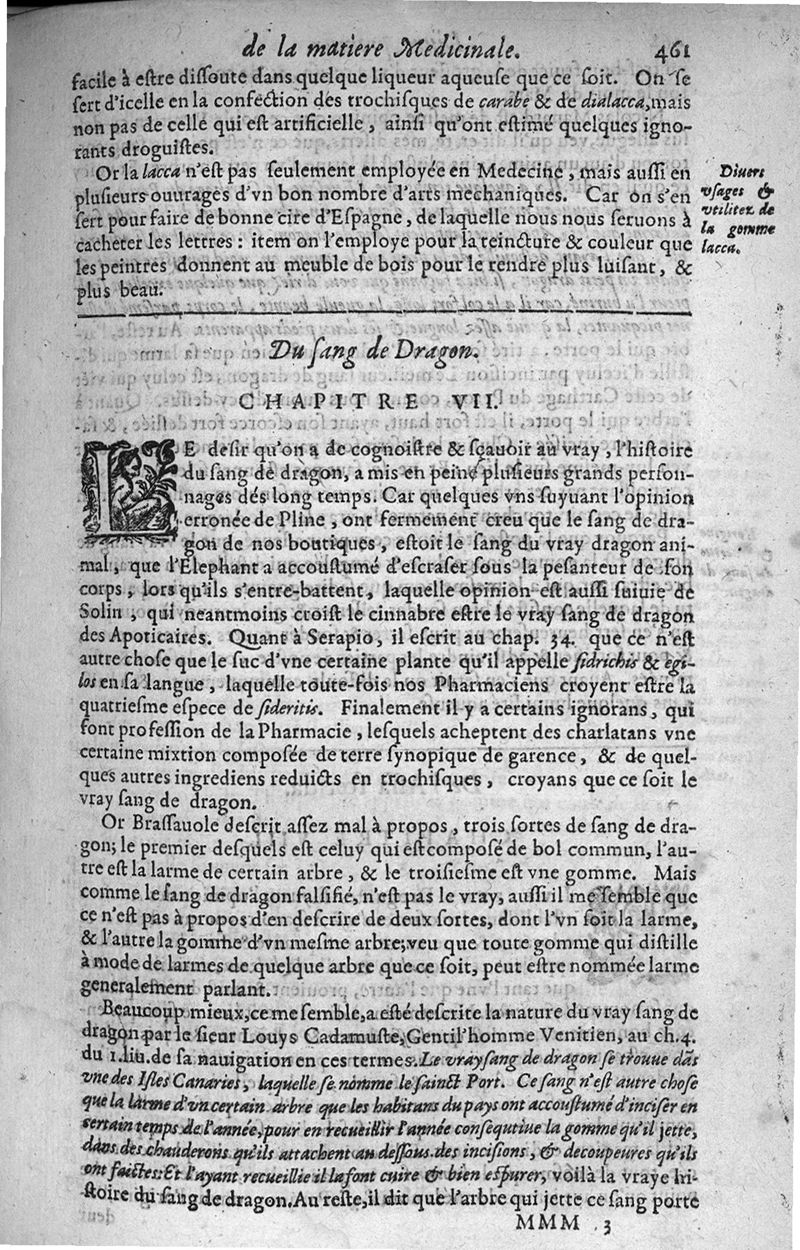 de la matiere Medicinale. 461
facile à estre dissoute dans quelque liqueur aqueuse que ce soit. On se
sert d'icelle en la confection des trochisques de carabe & de dialacca, mais
non pas de celle qui est artificielle, ainsi qu'ont estimé quelques igno-
rants droguistes.
Or la lacca n'est pas seulement employée en Medecine, mais aussi en
plusieurs ouurages d'vn bon nombre d'arts mechaniques. Car on s'en
sert pour faire de bonne cire d'Espagne, de laquelle nous nous seruons à
cacheter les lettres : item on l'employe pour la teincture & couleur que
les peintres donnent au meuble de bois pour le rendre plus luisant, &
plus beau.
Diuers
vsages &
vtilitez de
la gomme
lacca.
Du sang de Dragon.
CHAPITRE VII.
LE desir qu'on a de cognoistre & sçauoir au vray, l'histoire
du sang de dragon, a mis en peine plusieurs grands person-
nages dés long temps. Car quelques vns suyuant l'opinion
erronée de Pline, ont fermement creu que le sang de dra-
gon de nos boutiques, estoit le sang du vray dragon ani-
mal, que l'Elephant a accoustumé d'escraser sous la pesanteur de son
corps, lors qu'ils s'entre-battent, laquelle opinion est aussi suiuie de
Solin, qui neantmoins croist le cinnabre estre le vray sang de dragon
des Apoticaires. Quant à Serapio, il escrit au chap. 34. que ce n'est
autre chose que le suc d'vne certaine plante qu'il appelle sidrichis & egi-
los en sa langue, laquelle toute-fois nos Pharmaciens croyent estre la
quatriesme espece de sideritis. Finalement il y a certains ignorans, qui
font profession de la Pharmacie, lesquels acheptent des charlatans vne
certaine mixtion composée de terre synopique de garence, & de quel-
ques autres ingrediens reduicts en trochisques, croyans que ce soit le
vray sang de dragon.
Or Brassauole descrit assez mal à propos, trois sortes de sang de dra-
gon; le premier desquels est celuy qui est composé de bol commun, l'au-
tre est la larme de certain arbre, & le troisiesme est vne gomme. Mais
comme le sang de dragon falsifié, n'est pas le vray, aussi il me semble que
ce n'est pas à propos d'en descrire de deux sortes, dont l'vn soit la larme,
& l'autre la gomme d'vn mesme arbre; veu que toute gomme qui distille
à mode de larmes de quelque arbre que ce soit, peut estre nommée larme
generalement parlant.
Beaucoup mieux, ce me semble, a esté descrite la nature du vray sang de
dragon par le sieur Louys Cadamuste, Gentil'homme Venitien, au ch. 4.
du 1. liu. de sa nauigation en ces termes. Le vray sang de dragon se trouue dãs
vne des Isles Canaries, laquelle se nomme le sainct Port. Ce sang n'est autre chose
que la larme d'vn certain arbre que les habitans du pays ont accoustumé d'inciser en
certain temps de l'année, pour en recueillir l'année consequtiue la gomme qu'il jette,
dans des chauderons qu'ils attachent au dessous des incisions, & decoupeures qu'ils
ont faictes: Et l'ayant recueillie il la font cuire & bien espurer, voilà la vraye hi-
stoire du sang de dragon. Au reste, il dit que l'arbre qui jette ce sang porte
MMM 3